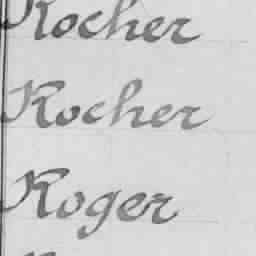 Kocher
Kocher
Roger